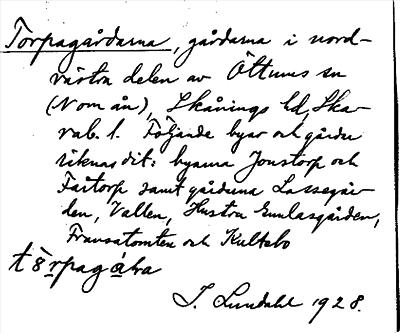 Torpagårdarna, gårdarna i nord-
västra delen av Öttums sn
(N om ån), Skånings hd, Ska-
rab. l. Följande byar och gårdar
räknas dit: byarna Jonstorp och
Fåstorp samt gårdarna Lassegår-
den, Vallen, Hustru Gunlasgården,
Fransatomten och Kultebo
I. Lundahl 1928.